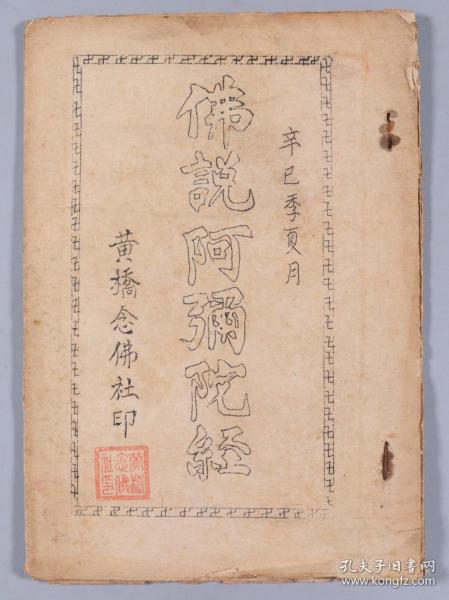 辛巳季夏月
佛說阿彌陀經
黄橋念佛社印
黄橋念佛社印
孔夫子旧书网
www.kongfz.com